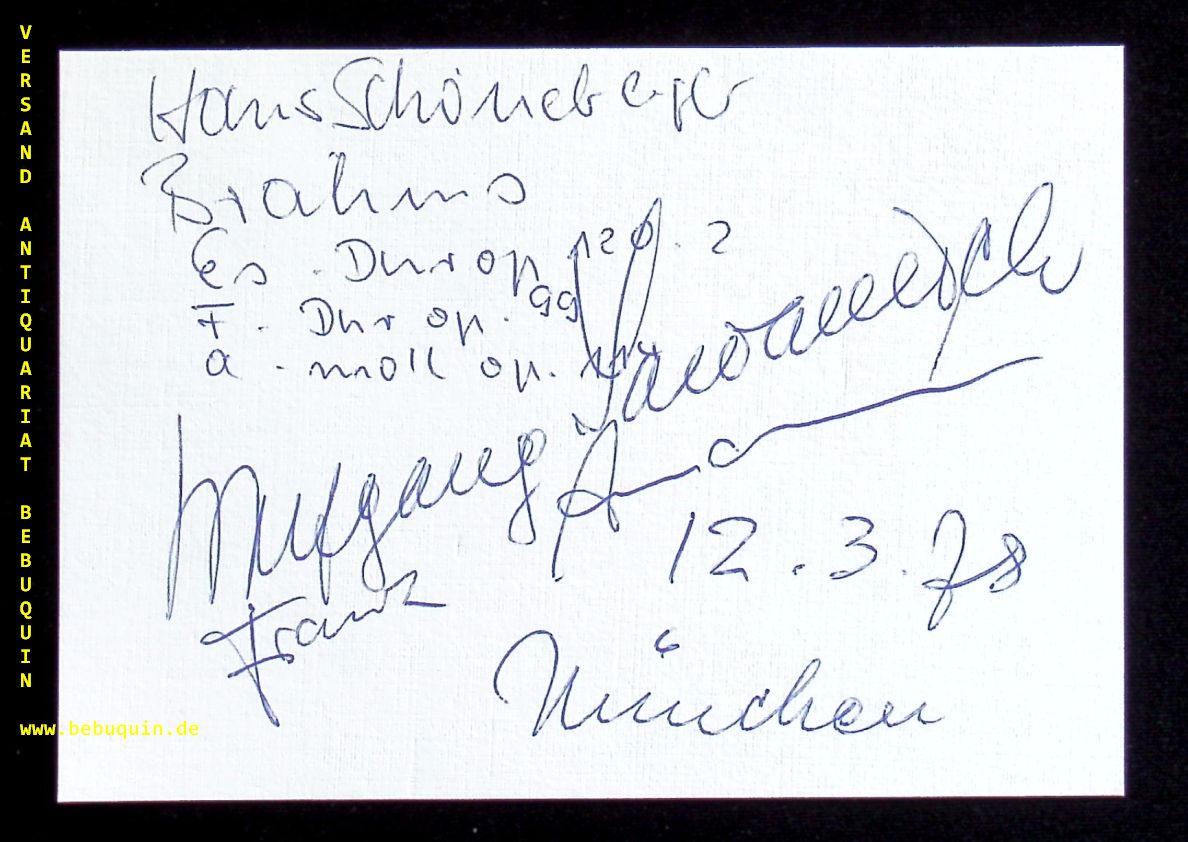 VERSAND ANTIQUARIAT BEBUQUIN
Hans Schöneberger
Brahms
Es-Dur op 120. 2
F-Dur op. 99
a-moll op. 114
Wolfgang Sawallisch
12.3.78
München
www.bebuquin.de